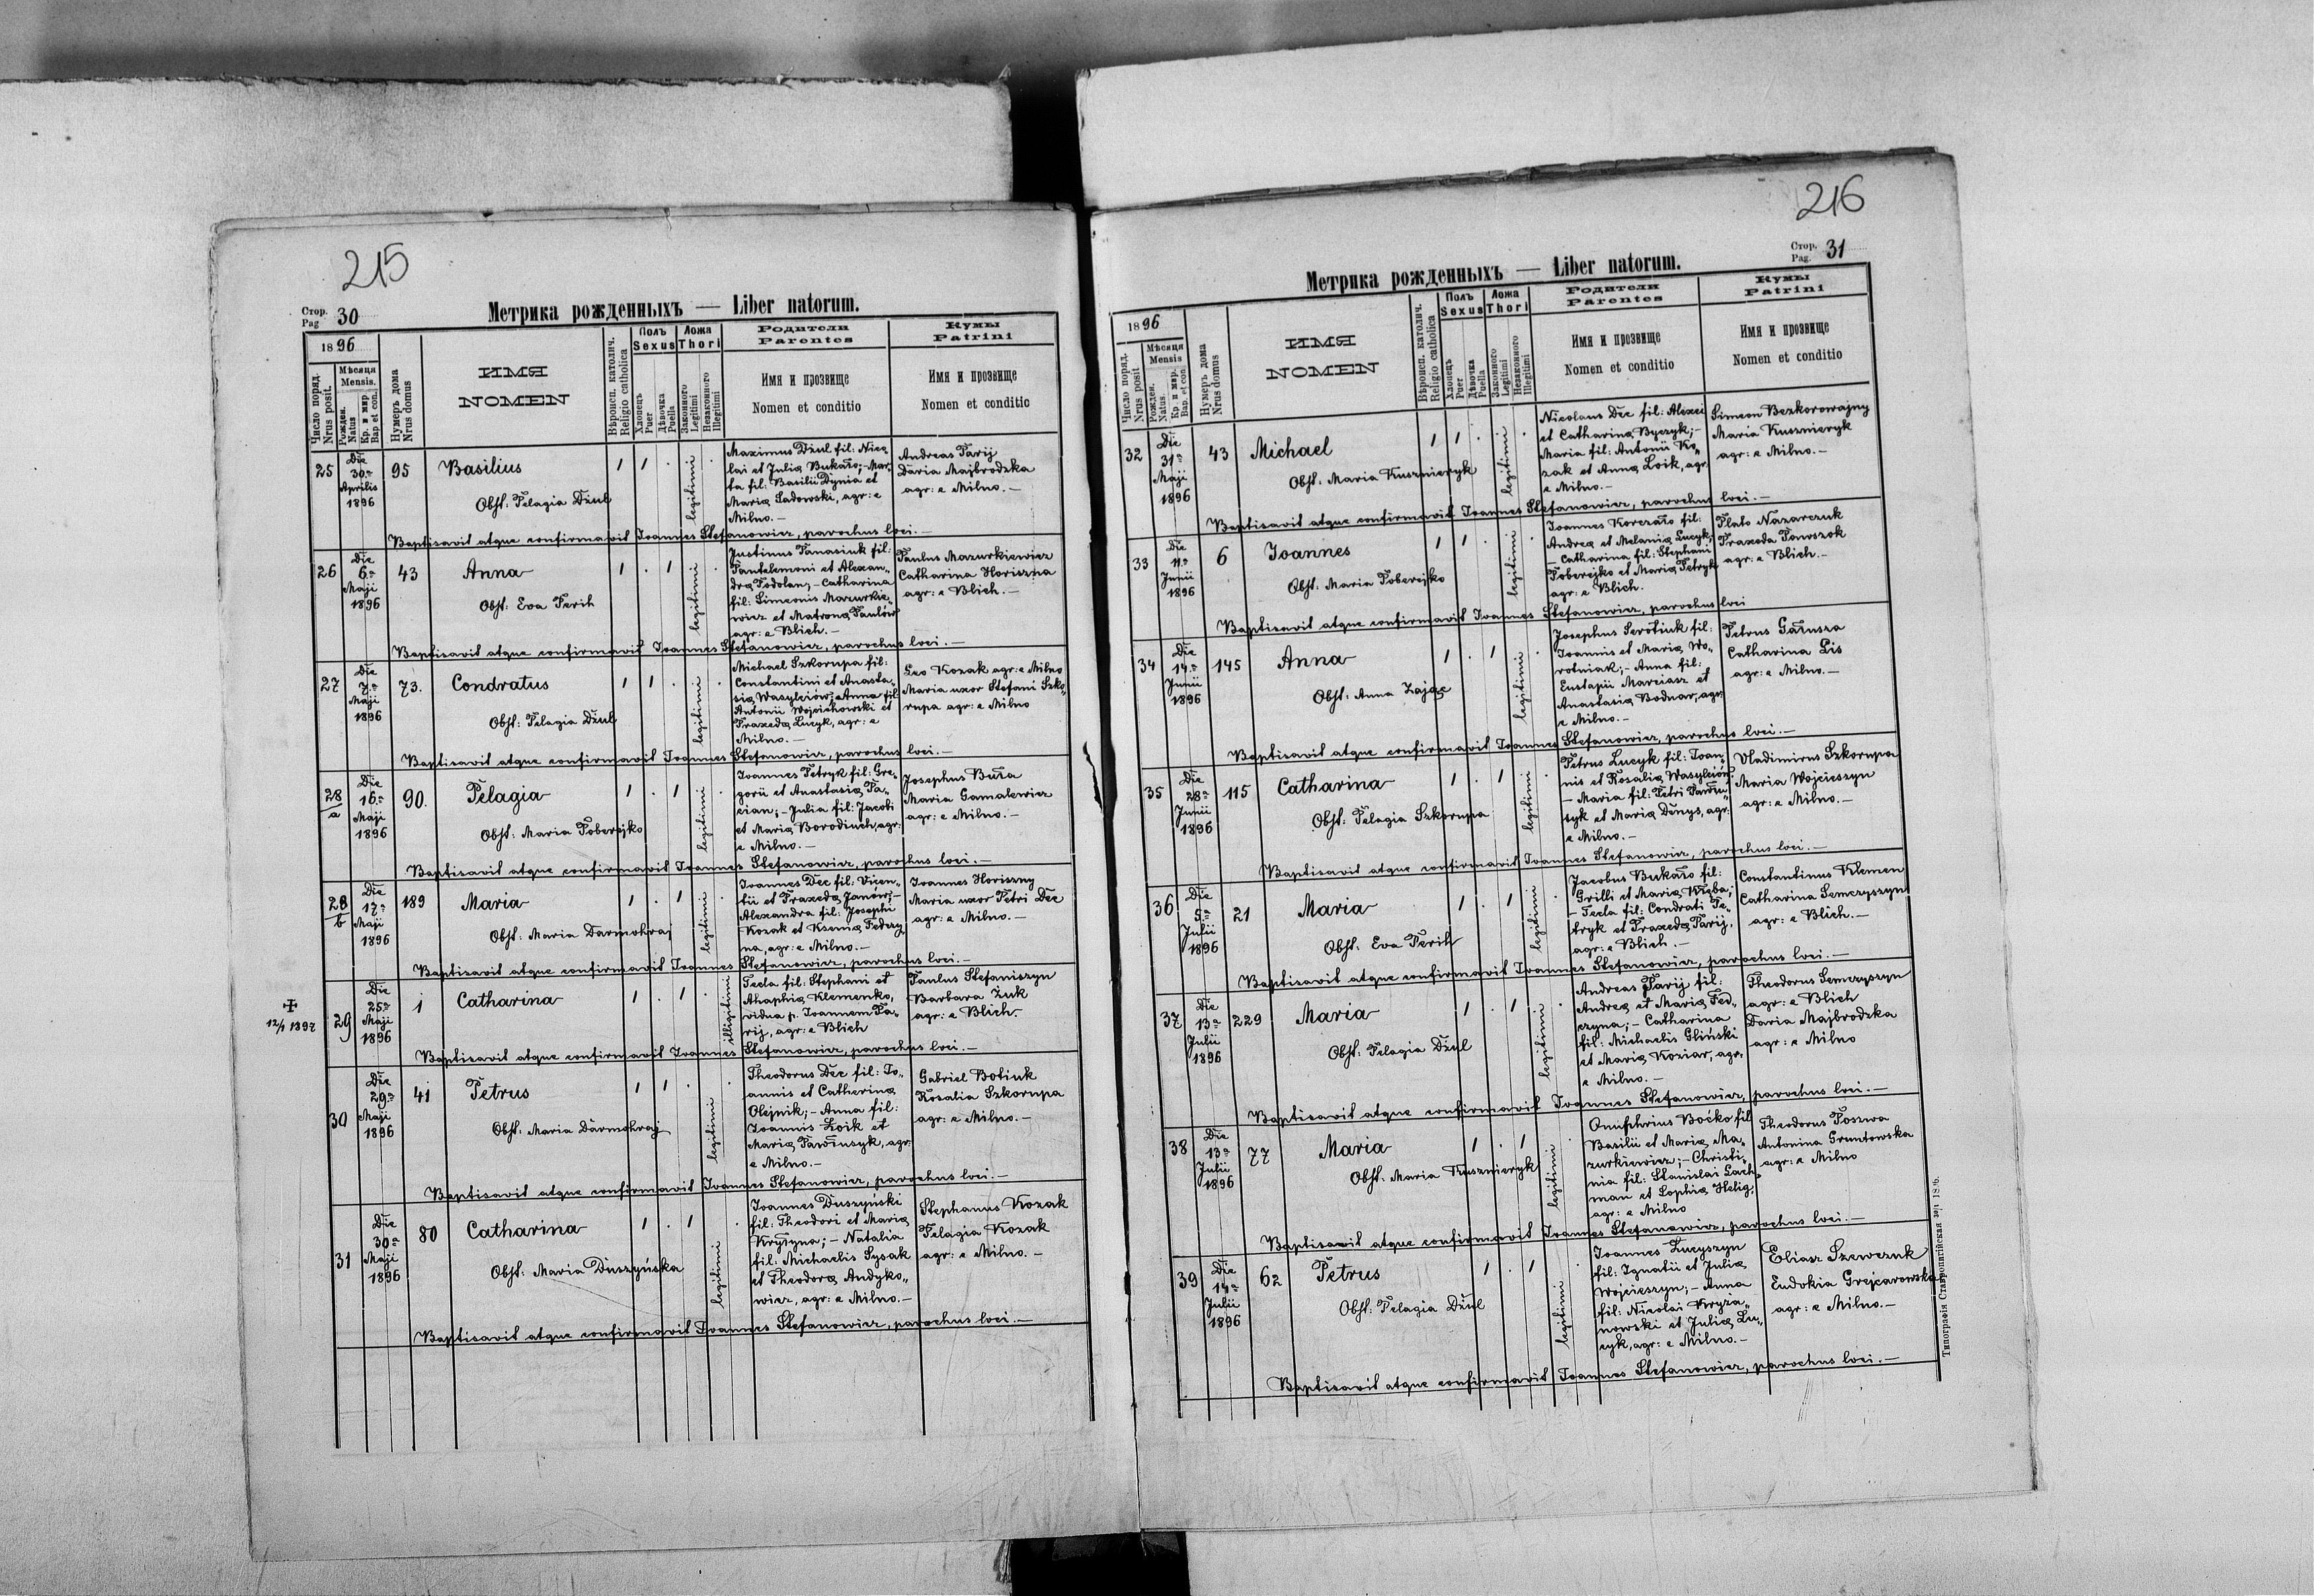 215
Стор.
Pag
30
Метрика рожденныхъ — Liber natorum.
1896
Число поряд.
Nrus posit.
Мѣсяця
Mensis.
Рожден.
Natus
Кр. и мир
Bap et con.
Нумеръ дома
Nrus domus
ИМЯ
NOMEN
Вѣроисп. католич.
Religio catholica
Полъ
Sexus
Хлопець
Puer
Дѣвочка
Puella
Ложа
Thori
Законного
Legitimi
Незаконного
Illegitimi
Родители
Parentes
Имя и прозвище
Nomen et conditio
Кумы
Patrini
Имя и прозвище
Nomen et conditio
25
Die
30a
Aprilis
1896
95
Basilius
Obst: Pelagia Dżul
1 1 .
legitimi
Maximus Dżul fil: Nico„
lai et Julia Bukało; – Mar„
ta fil: Basilii Dynia et
Maria Sadowski, agr: e
Milno. –
Andreas Parij
Daria Majbrodzka
agr: e Milno. –
Baptisavit atque confirmavit Joannes Stefanowicz, parochus loci. –
26
Die
6a
Maji
1896
43
Anna
Obst: Eva Perih
1 . 1
legitimi
Justinus Panasiuk fil:
Pantelemoni et Alexan„
dra Podolan; – Catharina
fil: Simeonis Mazurkie„
wicz et Matrona Pawłów
agr: e Blich. –
Paulus Mazurkiewicz
Catharina Horiszna
agr: e Blich. –
Baptisavit atque confirmavit Joannes Stefanowicz, parochus loci. –
27
Die
7a
Maji
1896
73.
Condratus
Obst: Pelagia Dżul
1 1 .
legitimi
Michael Szkorupa fil:
Constantini et Anasta„
sia Wasylciów; Anna fil:
Antonii Wojcichowski et
Praxeda Lucyk, agr: e
Milno. –
Leo Kozak agr: e Milno
Maria uxor Stefani Szko„
rupa agr: e Milno
Baptisavit atque confirmavit Joannes Stefanowicz, parochus loci. –
28/a
Die
16a
Maji
1896
90.
Pelagia
Obst: Maria Poberejko
1 . 1
legitimi
Joannes Petryk fil: Gre„
gorii et Anastasia Pa„
cian; – Julia fil: Jacobi
et Maria Borodiuch, agr:
e Milno. –
Josephus Buła
Maria Gamalewicz
agr: e Milno. –
Baptisavit atque confirmavit Joannes Stefanowicz, parochus loci. –
28/b
Die
17a
Maji
1896
189
Maria
Obst: Maria Darmohraj
1 . 1
legitimi
Joannes Dec fil: Vicen„
tii et Praxeda Janów; –
Alexandra fil: Josephi
Kozak et Ksenia Federy
na, agr: e Milno. –
Joannes Horiszny
Maria uxor Petri Dec
agr: e Milno. –
Baptisavit atque confirmavit Joannes Stefanowicz, parochus loci. –
✠
12/1 1897
29
Die
25a
Maji
1896
1
Catharina
1 . 1 .
illigitimi
Tecla fil: Stephani et
Ahaphia Klemenko,
vidua p. Joannem Pa„
rij, agr: e Blich
Paulus Stefaniszyn
Barbara Żuk
agr: e Blich.
Baptisavit atque confirmavit Joannes Stefanowicz, parochus loci. –
30
Die
29a
Maji
1896
41
Petrus
Obst: Maria Darmohraj
1 1 .
legitimi
Theodorus Dec fil: Jo„
annis et Catherina
Olejnik; – Anna fil:
Joannis Łoik et
Maria Pawlusyk, agr:
e Milno. –
Gabriel Botiuk
Rosalia Szkorupa
agr: e Milno. –
Baptisavit atque confirmavit Joannes Stefanowicz, parochus loci. –
31
Die
30a
Maji
1896
80
Catharina
Obst: Maria Duszyńska
1 . 1
legitimi
Joannes Duszyński
fil: Theodori et Maria
Kryszna; – Natalia
fil: Michaelis Sysak
et Theodora Andyko„
wicz, agr: e Milno. –
Stephanus Kozak
Pelagia Kozak
agr: e Milno. –
Baptisavit atque confirmavit Joannes Stefanowicz, parochus loci. –
216
Стор.
Pag.
31
Метрика рожденныхъ — Liber natorum.
1896
Число поряд.
Nrus posit
Мѣсяця
Mensis
Рожден.
Natus.
Кр. и мир.
Bap. et con.
Нумеръ дома
Nrus domus
ИМЯ
NOMEN
Вѣроисп. католич.
Religio catholica
Полъ
Sexus
Хлопець
Puer
Дѣвочка
Puella
Ложа
Thori
Законного
Legitimi
Незаконного
Illegitimi
Родители
Parentes
Имя и прозвище
Nomen et conditio
Кумы
Patrini
Имя и прозвище
Nomen et conditio
32
Die
31a
Maji
1896
43
Michael
Obst: Maria Kusznieryk
1 1 .
legitimi
Nicolaus Dec fil: Alexei
et Catharina Byczyk; –
Maria fil: Antonii Ko„
zak et Anna Loik, agr:
e Milno. –
Simeon Bezkorowajny
Maria Kusznieryk
agr: e Milno. –
Baptisavit atque confirmavit Joannes Stefanowicz, parochus loci. –
33
Die
11a
Junii
1896
6
Joannes
Obst: Maria Poberejko
1 1 .
legitimi
Joannes Korczało fil:
Andrea et Melania Lucyk;
– Catharina fil: Stephani
Poberejko et Maria Petryk
agr: e Blich.
Plato Nazarczuk
Praxeda Pawszok
agr: e Blich. –
Baptisavit atque confirmavit Joannes Stefanowicz, parochus loci
34
Die
14a
Junii
1896
145
Anna
Obst: Anna Zając
1 . 1
legitimi
Josephus Serotiuk fil:
Joannis et Maria Wo„
rotniak; – Anna fil:
Eustapii Marciasz et
Anastasia Bodnar, agr:
e Milno. –
Petrus Gałusza
Catharina Lis
agr: e Milno. –
Baptisavit atque confirmavit Joannes Stefanowicz, parochus loci. –
35
Die
28a
Junii
1896
115
Catharina
Obst: Pelagia Szkorupa
1 . 1
legitimi
Petrus Lucyk fil: Joan„
nis et Rosalia Wasylciów;
– Maria fil: Petri Pawlu„
syk et Maria Dżnys, agr:
e Milno. –
Vladimirus Szkorupa
Maria Wojcieszyn
agr: e Milno. –
Baptisavit atque confirmavit Joannes Stefanowicz, parochus loci. –
36
Die
5a
Julii
1896
21
Maria
Obst: Eva Perih
1 . 1
legitimi
Jacobus Bukało fil:
Grilli et Maria Kłęba;
– Tecla fil: Condrati Pe„
tryk et Praxeda Parij,
agr: e Blich. –
Constantinus Klemen
Catharina Semczyszyn
agr: e Blich. –
Baptisavit atque confirmavit Joannes Stefanowicz, parochus loci. –
37
Die
13a
Julii
1896
229
Maria
Obst: Pelagia Dżul
1 . 1
legitimi
Andreas Parij fil:
Andrea et Maria Fed„
czyna; – Catharina
fil: Michaelis Gliński
et Maria Koziar, agr:
e Milno. –
Theodorus Semczyszyn
agr: e Blich
Daria Majbrodzka
agr: e Milno
Baptisavit atque confirmavit Joannes Stefanowicz, parochus loci. –
38
Die
13a
Julii
1896
77
Maria
Obst: Maria Kusznieryk
1 . 1
legitimi
Onuphrius Boćko fil
Basilii et Maria Ma„
zurkiewicz; – Christi„
nia fil: Stanislai Lach„
man et Sophia Helig,
agr: e Milno
Theodorus Poszwa
Antonina Gruntowska
agr: e Milno
Baptisavit atque confirmavit Joannes Stefanowicz, parochus loci. –
39
Die
14a
Julii
1896
62
Petrus
Obst: Pelagia Dżul
1 . 1
legitimi
Joannes Lucyszyn
fil: Ignatii et Julia
Wojcieszyn; – Anna
fil: Nicolai Kryża„
nowski et Julia Lu„
cyk, agr: e Milno. –
Eliasz Szewczuk
Eudokia Grejcarowska
agr: e Milno. –
Baptisavit atque confirmavit Joannes Stefanowicz, parochus loci. –
Типографія Ставропигійская